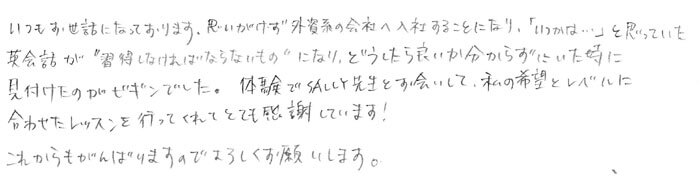 いつもお世話になっております。思いがけず外資系の会社へ入社することになり、「いつかは…」と思っていた
英会話が"習得しなければならないもの"になり、どうしたら良いか分からずにいた時に
見付けたのがビギンでした。体験でSALLY先生とお会いして、私の希望とレベルに
合わせたレッスンを行ってくれてとても感謝しています!
これからもがんばりますのでよろしくお願いします。